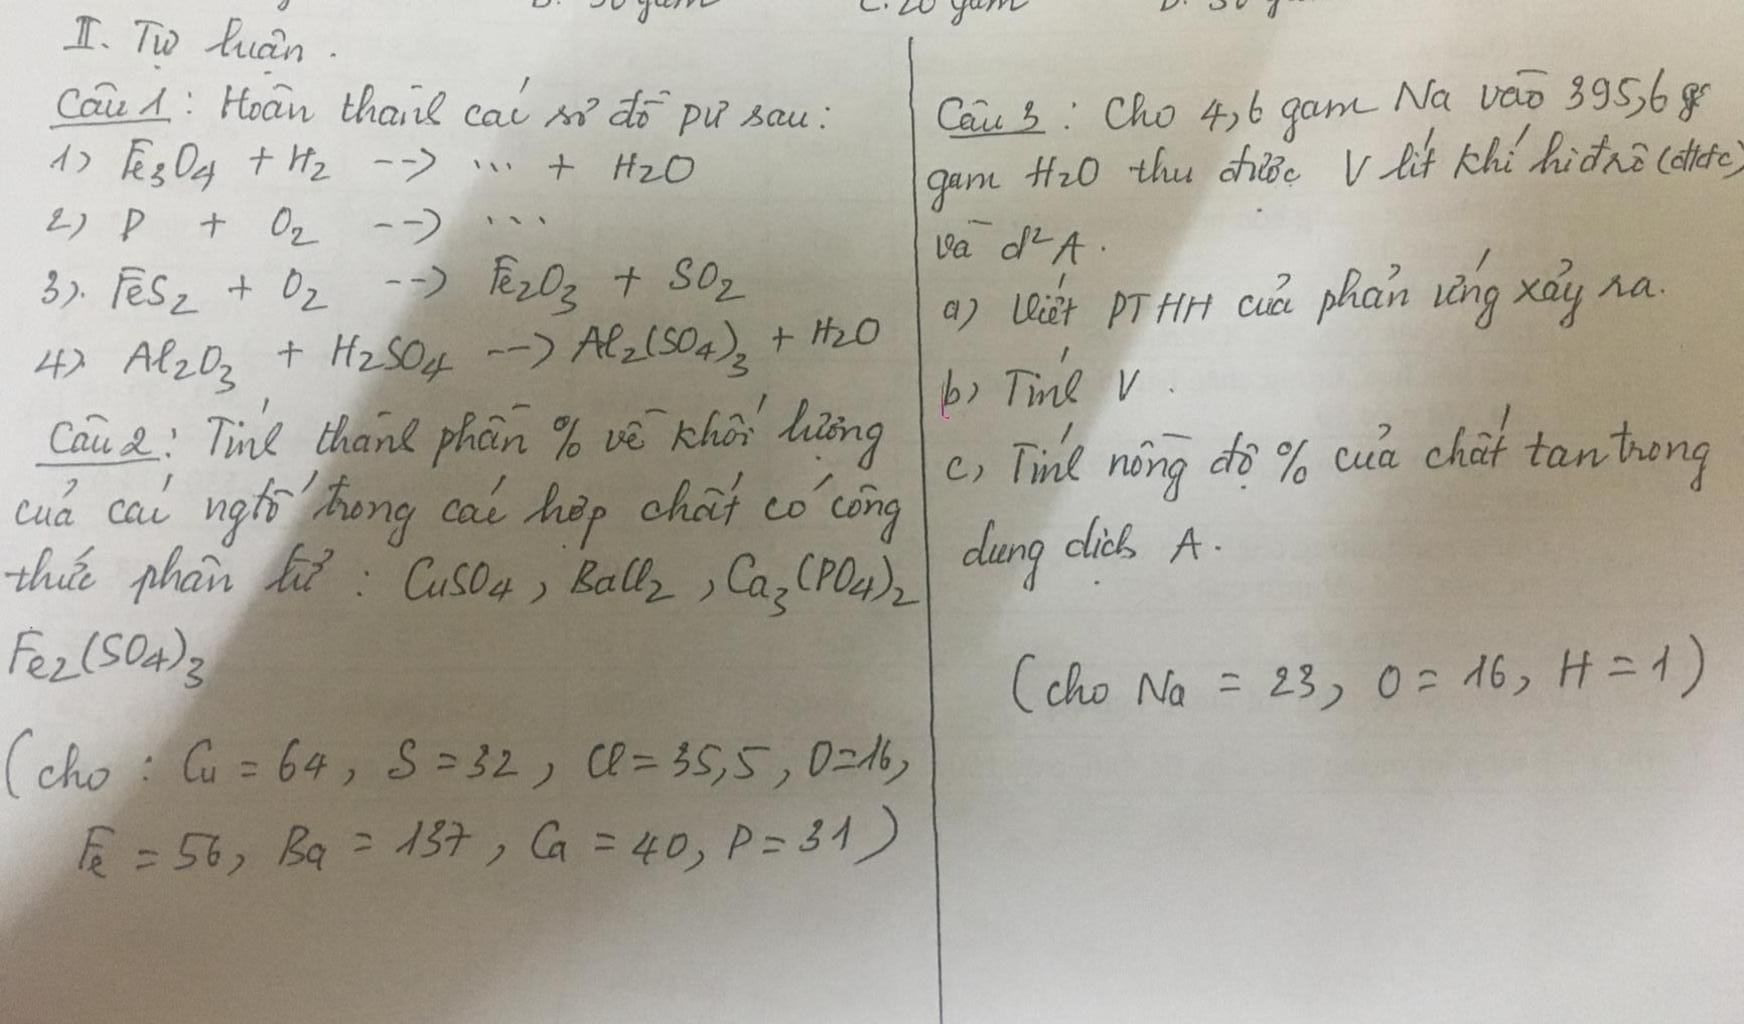 B. 30 gam C. 20 gam D.
II. Tự luận.
Câu 1: Hoàn thành các sơ đồ pư sau:
1) Fe3O4 + H2 --> ... + H2O
2) P + O2 --> ...
3). FeS2 + O2 --> Fe2O3 + SO2
4) Al2O3 + H2SO4 --> Al2(SO4)3 + H2O
Câu 2: Tính thành phần % về khối lượng
của các ngtố trong các hợp chất có công
thức phân tử: CuSO4, BaCl2, Ca3(PO4)2
Fe2(SO4)3
(cho: Cu = 64, S = 32, Cl = 35,5, O=16,
Fe = 56, Ba = 137, Ca = 40, P = 31)
Câu 3: Cho 4,6 gam Na vào 395,6 g
gam H2O thu được V lít khí hiđrô (đktc)
và d² A.
a) Viết PTHH của phản ứng xảy ra.
b) Tính V.
c, Tính nồng độ % của chất tan trong
dung dịch A.
(cho Na = 23, O = 16, H = 1)